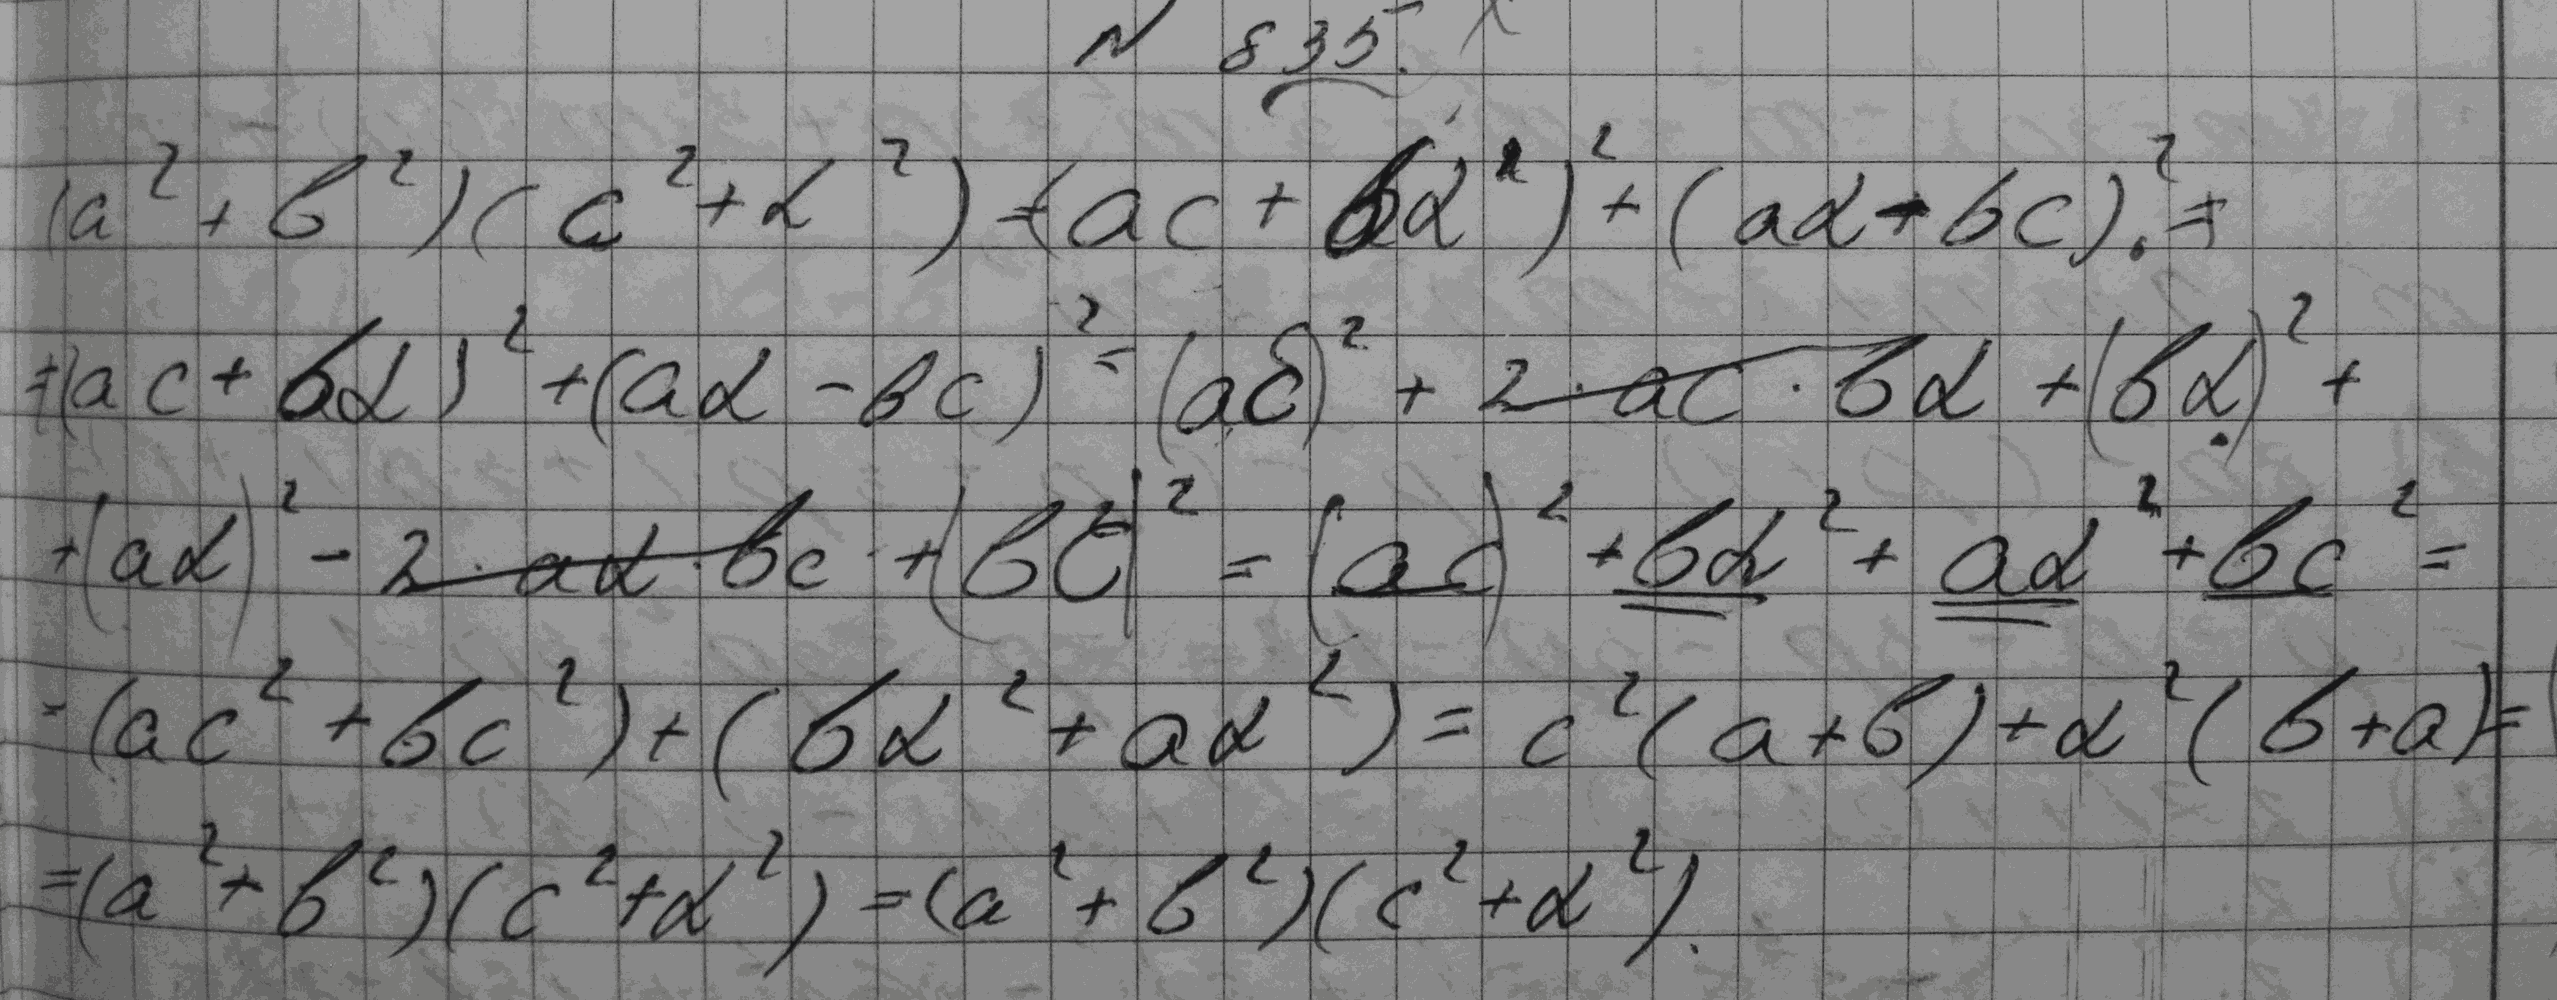 N 835.
(a²+b²)(c²+d²)=(ac+bd²)²+(ad-bc)²=
=(ac+bd)²+(ad-bc)²=(ac)²+2·ac·bd+(bd)²+
+(ad)²-2·ad·bc+(bc)²=(ac)²+bd²+ad²+bc²=
=(ac²+bc²)+(bd²+ad²)=c²(a+b)+d²(b+a)=
=(a²+b²)(c²+d²)=(a²+b²)(c²+d²).